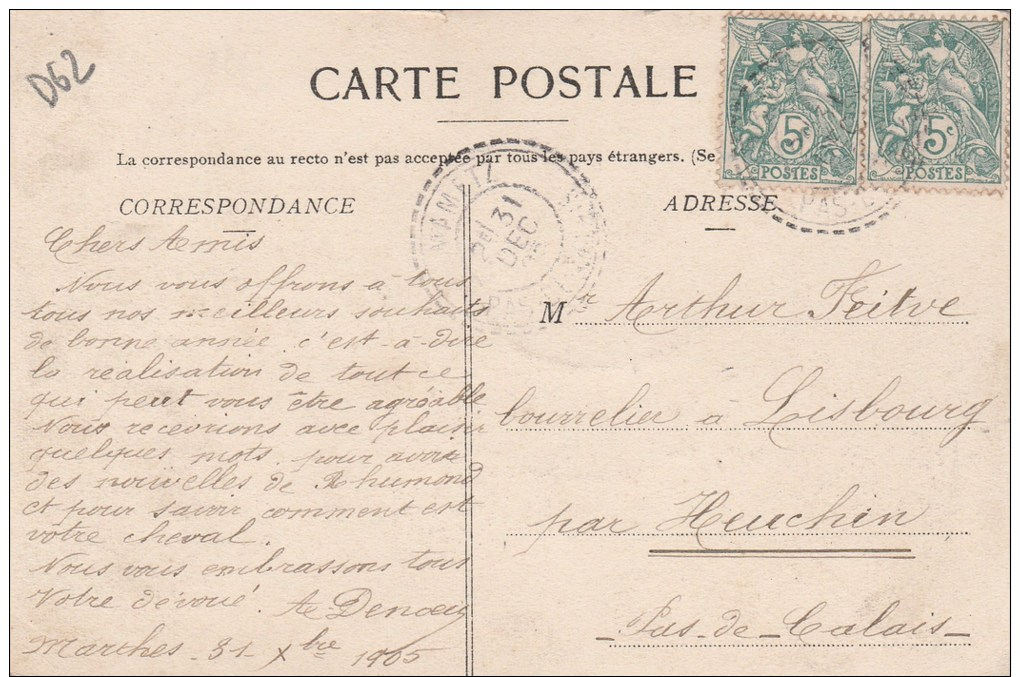 D62
CARTE POSTALE
La correspondance au recto n'est pas acceptée par tous les pays étrangers. (Se
CORRESPONDANCE
Chers Amis
Nous vous offrons à tous
tous nos meilleurs souhaits
de bonne année, c'est-à-dire
la réalisation de tout ce
qui peut vous être agréable
Nous recevrions avec plaisir
quelques mots pour avoir
des nouvelles de Rhumond
et pour savoir comment est
votre cheval.
Nous vous embrassons tous
Votre dévoué.
Marthes 31 Xbre 1905
ADRESSE
Mr Arthur
bourrelier à Lisbourg
par Heuchin
Pas-de-Calais
5c
POSTES
5c
POSTES
MAMETZ
31
DEC
PAS-